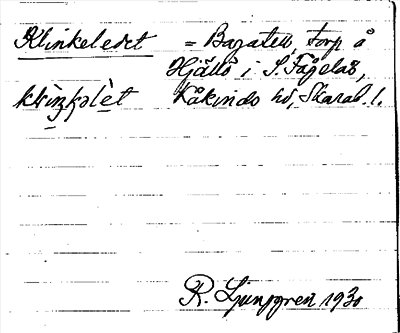 Klinkeledet = Bagatell, torp å
Hjällö i S. Fågelås,
Kåkinds hd, Skarab. l.
R. Ljunggren 1930